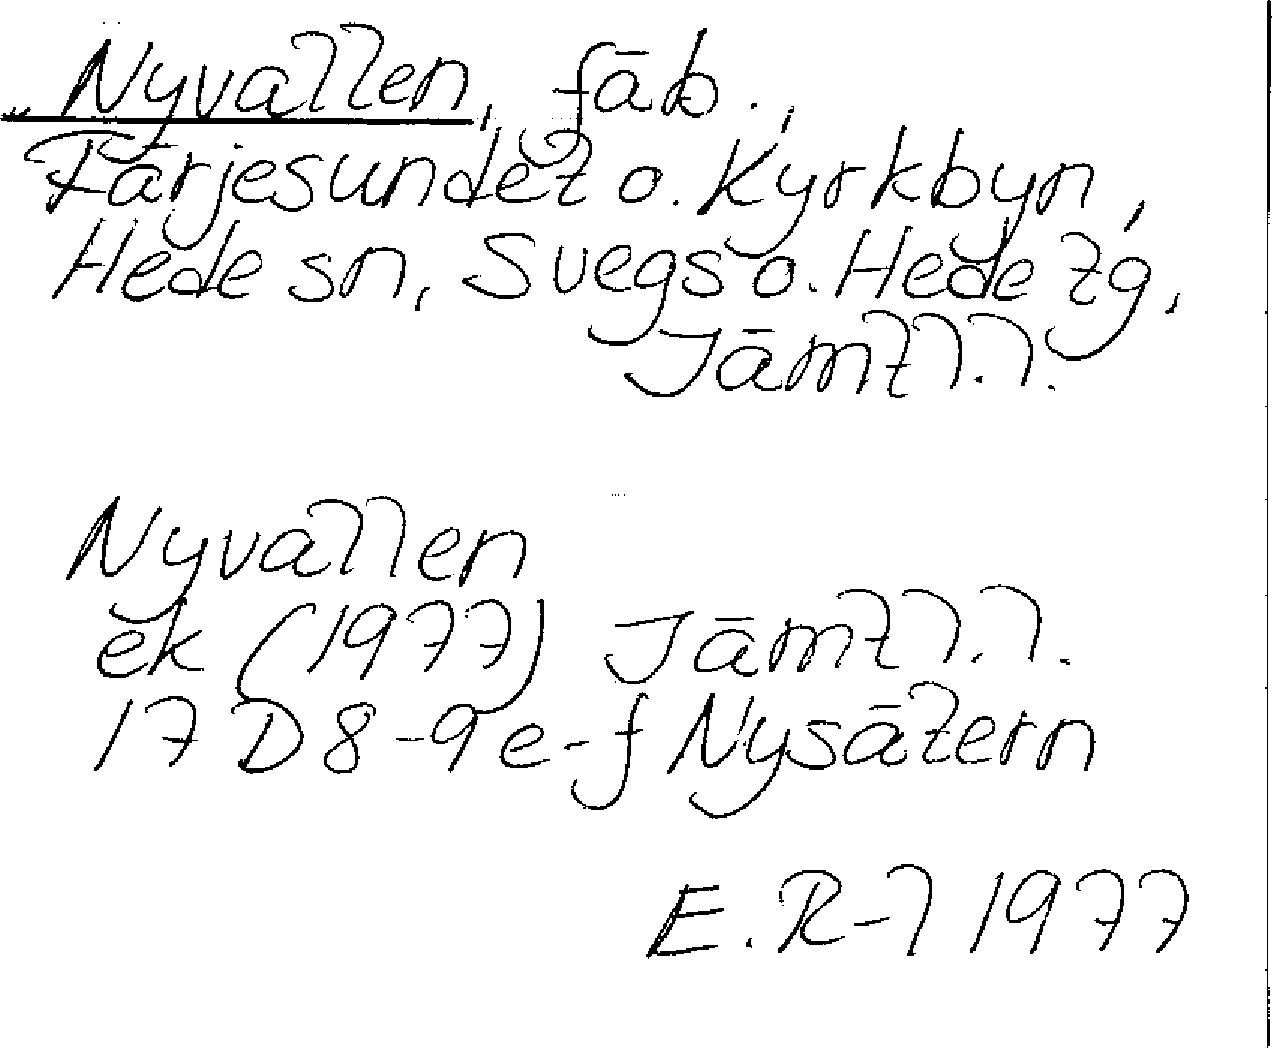 Nyvallen, fäb.,
Färjesundet o. Kyrkbyn,
Hede sn, Svegs o. Hede tg,
Jämtl.l.
Nyvallen
ek (1977) Jämtl.l.
17 D 8-9 e-f Nysätern
E. R-l 1977